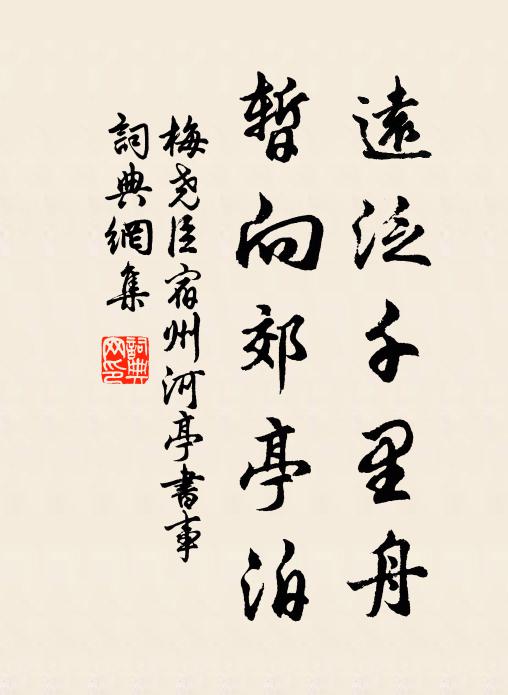 遠泛千里舟
暫向郊亭泊
梅尧臣宿州河亭書事
詞典網集
詞典網印